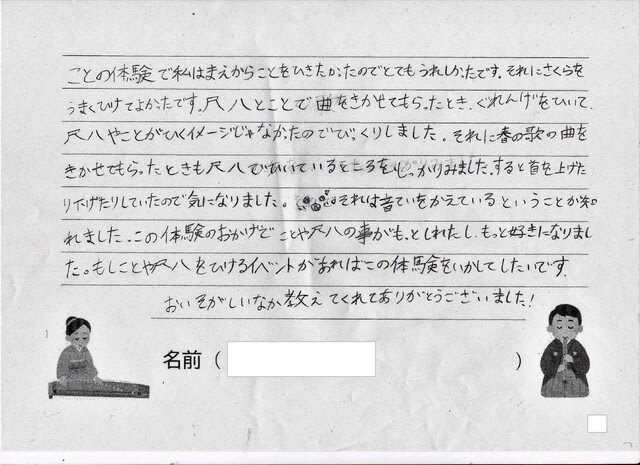 ことの体験で私はまえからことをひきたかったのでとてもうれしかったです。それにさくらを
うまくひけてよかったです。尺八とことで曲をきかせてもらったとき、ぐれんげをひいて、
尺八やことがひくイメージじゃなかったのでびっくりしました。それに春の歌の曲を
きかせてもらったときも尺八でふいているところをじっかりみました。すると首を上げた
り下げたりしていたので気になりました。それは音ていをかえているということが知
れました。この体験のおかげでことや尺八の事がもっとしれたし、もっと好きになりまし
た。もしことや尺八をひけるイベントがあればこの体験をいかしてしたいです。
おいそがしいなか教えてくれてありがとうございました!
名前( )